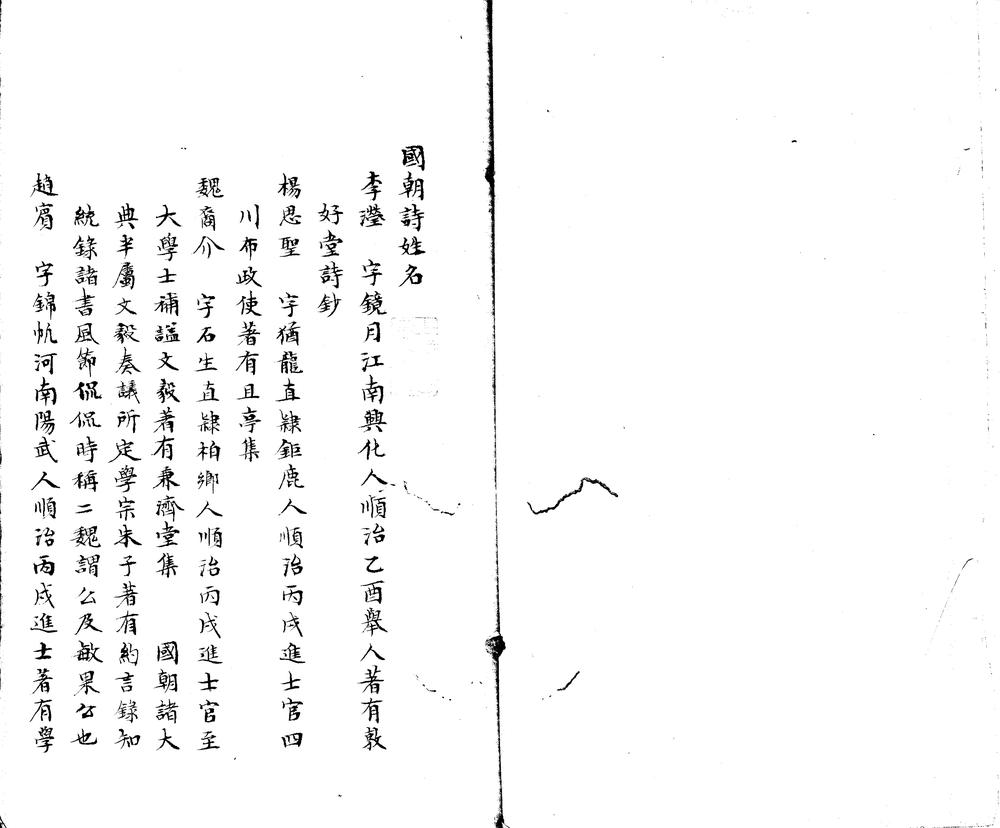 國朝詩姓名
李瀅　字鏡月江南興化人順治乙酉舉人著有敦
好堂詩鈔
楊思聖　字猶龍直隸鉅鹿人順治丙戌進士官四
川布政使著有且亭集
魏裔介　字石生直隸柏鄉人順治丙戌進士官至
大學士補謚文毅著有兼濟堂集　國朝諸大
典半屬文毅奏議所定學宗朱子著有約言錄知
統錄諸書風節侃侃時稱二魏謂公及敏果公也
趙賓　字錦帆河南陽武人順治丙戌進士著有學